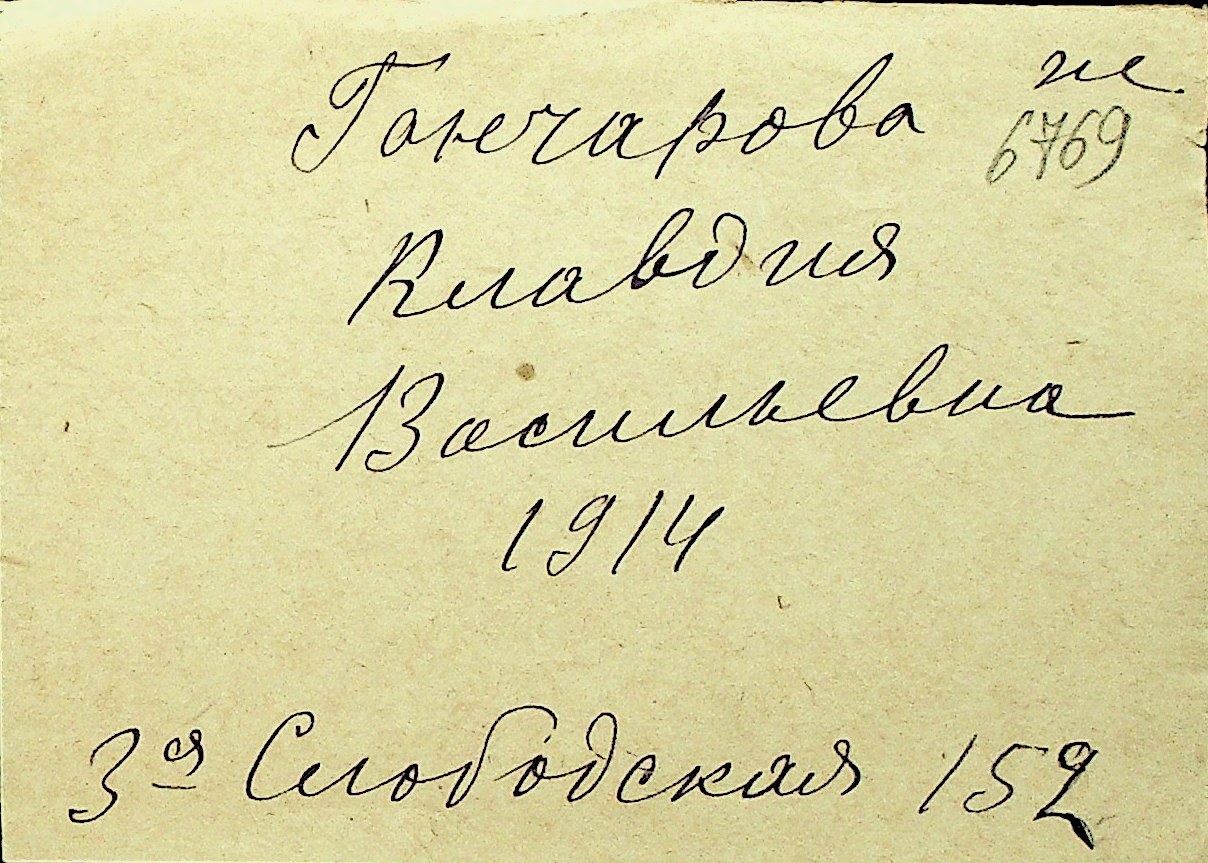 Гончарова
6769
Клавдия
Васильевна
1914
3я Слободская 152